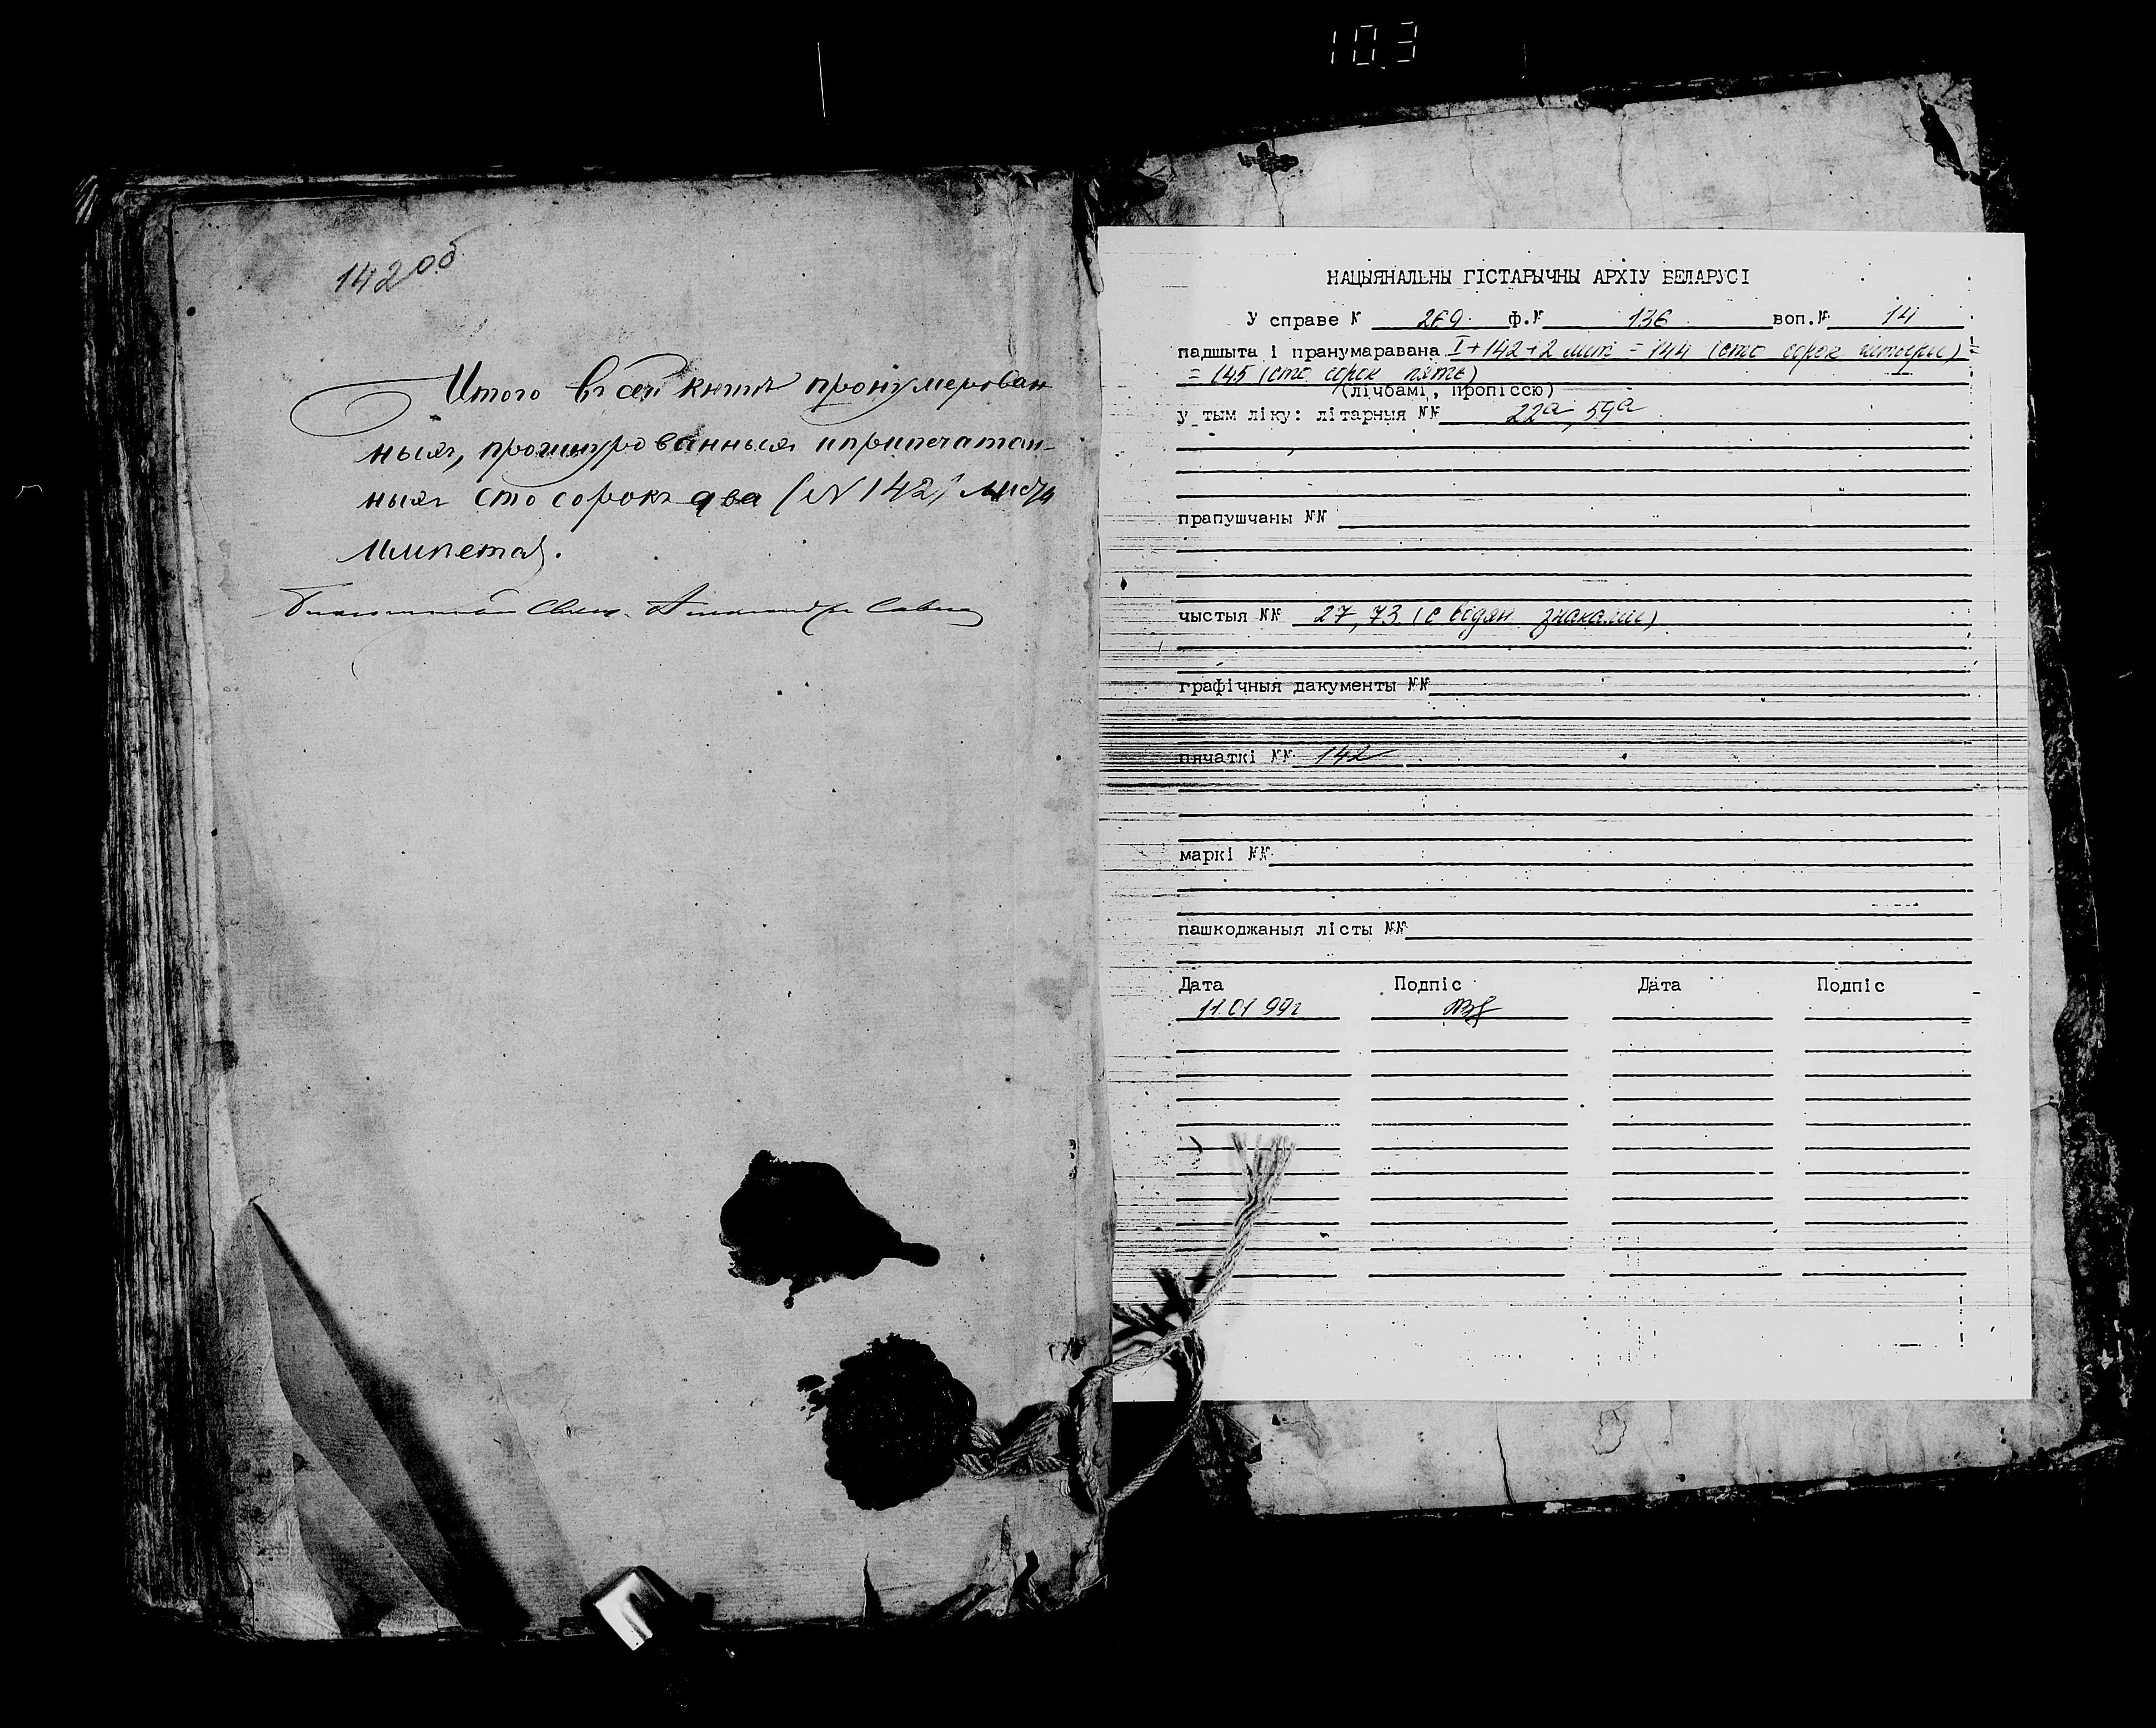 10.3
142об
Итого въ сей книгѣ пронумерован
ныхъ, прошнурованныхъ и припечатан-
ныхъ сто сорокъ два (N 142) листа
Александръ Савич
НАЦЫЯНАЛЬНЫ ГІСТАРЫЧНЫ АРХІУ БЕЛАРУСІ
У справе № 269 ф.№ 136 воп.№ 14
падшыта і пранумаравана I+142+2 лит = 144 (сто сорок четыре) =
= 145 (сто сорок пять)
(лічбамі, пропіссю)
у тым ліку: літарныя №№ 22а, 59а
прапушчаны №№
чыстыя №№ 27, 73 (с водян. знаками)
графічныя дакументы №№
пячаткі №№ 142
маркі №№
пашкоджаныя лісты №№
Дата Подпіс Дата Подпіс
11.01.99г